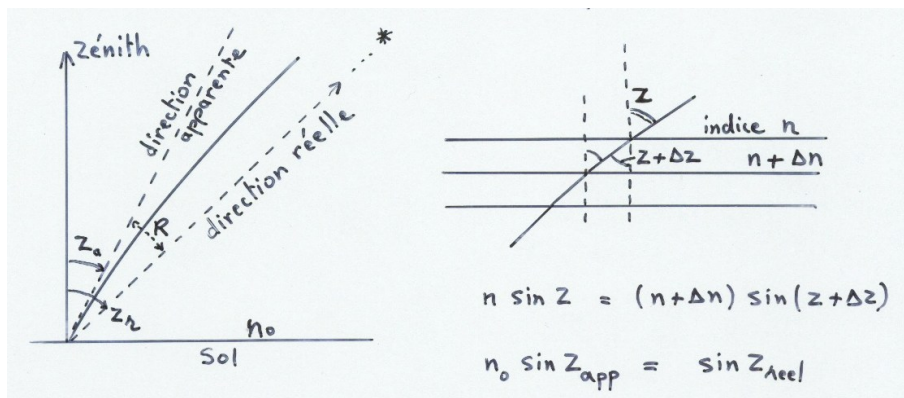 zénith
*
direction
apparente
direction réelle
R
Za
Zr
no
Sol
Z
indice n
Z+ΔZ
n + Δn
n sin Z = (n+Δn) sin(Z+ΔZ)
no sin Zapp = sin Zreel